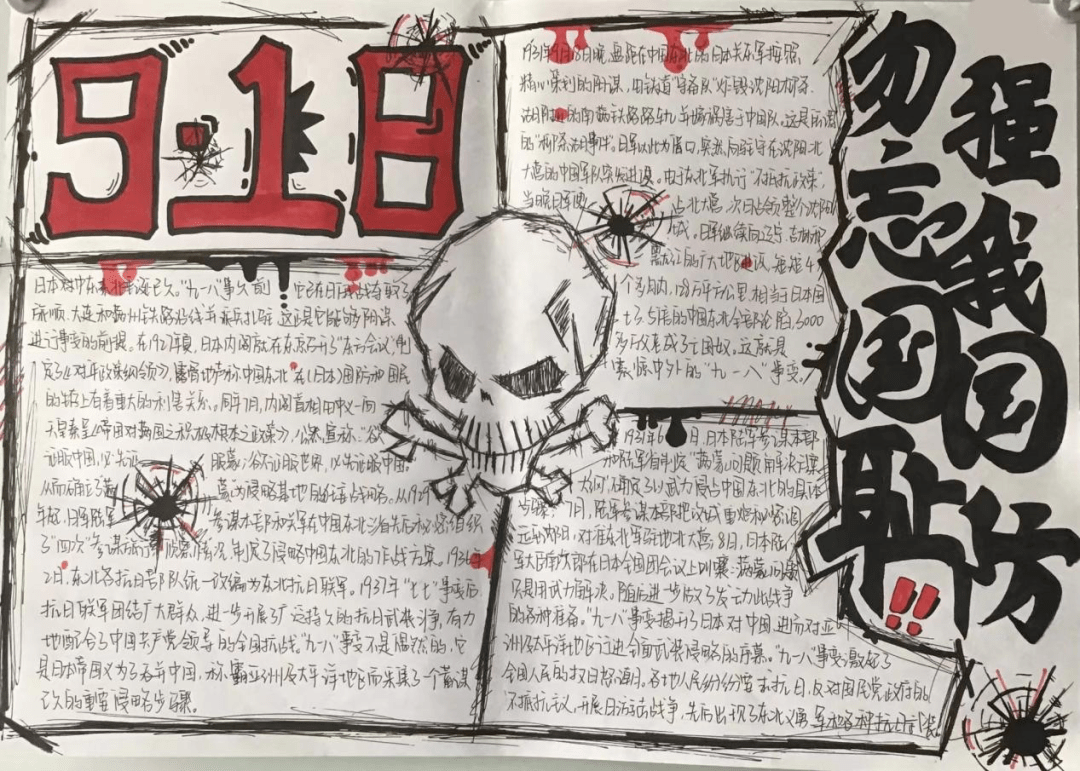 9.18
勿忘国耻!!
强我国防
1931年9月18日晚,盘踞在中国东北的日本关东军按照
精心策划的阴谋,由铁道"守备队"炸毁沈阳柳条
湖附近的南满铁路路轨,并嫁祸于中国军队,这是所谓
的"柳条湖事件"。日军以此为借口,突然向驻守在沈阳北
大营的中国军队发动进攻。由于东北军执行"不抵抗政策",
当晚日军便 占北大营,次日占领整个沈阳
城。日军继续向辽宁、吉林和
黑龙江的广大地区进攻,短短4
个多月内,128万平方公里、相当于日本国
土3.5倍的中国东北全部沦陷,3000
多万父老成了亡国奴。这就是
震惊中外的"九一八"事变。
日本对中东东北垂涎已久。"九一八"事变前 它已在日俄战争夺取了
旅顺、大连和 铁路沿线并派兵扎驻,这是它能够阴谋
进行事变的前提。在1927年夏,日本内阁就在东京召开了"东方会议",制
定了《对华政策纲领》,露骨地声称中国东北"在(日本)国防和国民
的 上有着重大的利害关系。同年7月,内阁首相田中义一向
天皇奏呈《帝国对满国之积极根本之政策》,公然宣称:"欲
征服中国,必先征 服满 欲征服世界,必先征服中国。
从而确立了 蒙为侵略基地的狂妄战略。从1929
年起,日军陆军 参谋本部和关东军在中国东北 先后秘密组织
了"四次"参谋旅行 情况,制定了侵略中国东北的作战方案。1936年
2月,东北各抗日部队统一改编为东北抗日联军。1937年"七七"事变后,
抗日联军团结广大群众,进一步开展了广泛持久的抗日武装斗争,有力
地配合了中国共产党领导的全国抗战。"九一八"事变不是偶然的,它
是日本帝国主义为了吞并中国、称霸亚洲及太平洋地区而采集了个蓄谋
已久的重要侵略步骤。
1931年6月,日本陆军参谋本部
和陆军省制定"满蒙问题解决方案
大纲",确定了以武力侵占中国东北的具体
步骤。7月,陆军参谋本部把攻城重炮秘密调
运 沈阳,对准东北军驻地北大营。8日,日本陆
军大臣南次郎在日本全国 会议上叫嚣:满蒙问题
只是用武力解决。随后进一步做了发动此战争
的各种准备。"九一八"事变揭开了日本对中国、进而对亚
洲及太平洋地区进行全面武装侵略的序幕。"九一八"事变激起了
全国人民的抗日怒潮。各地人民纷纷要求抗日,反对国民党政府的
不抵抗主义,开展日 击战争,先后出现了东北义勇军和各种抗日